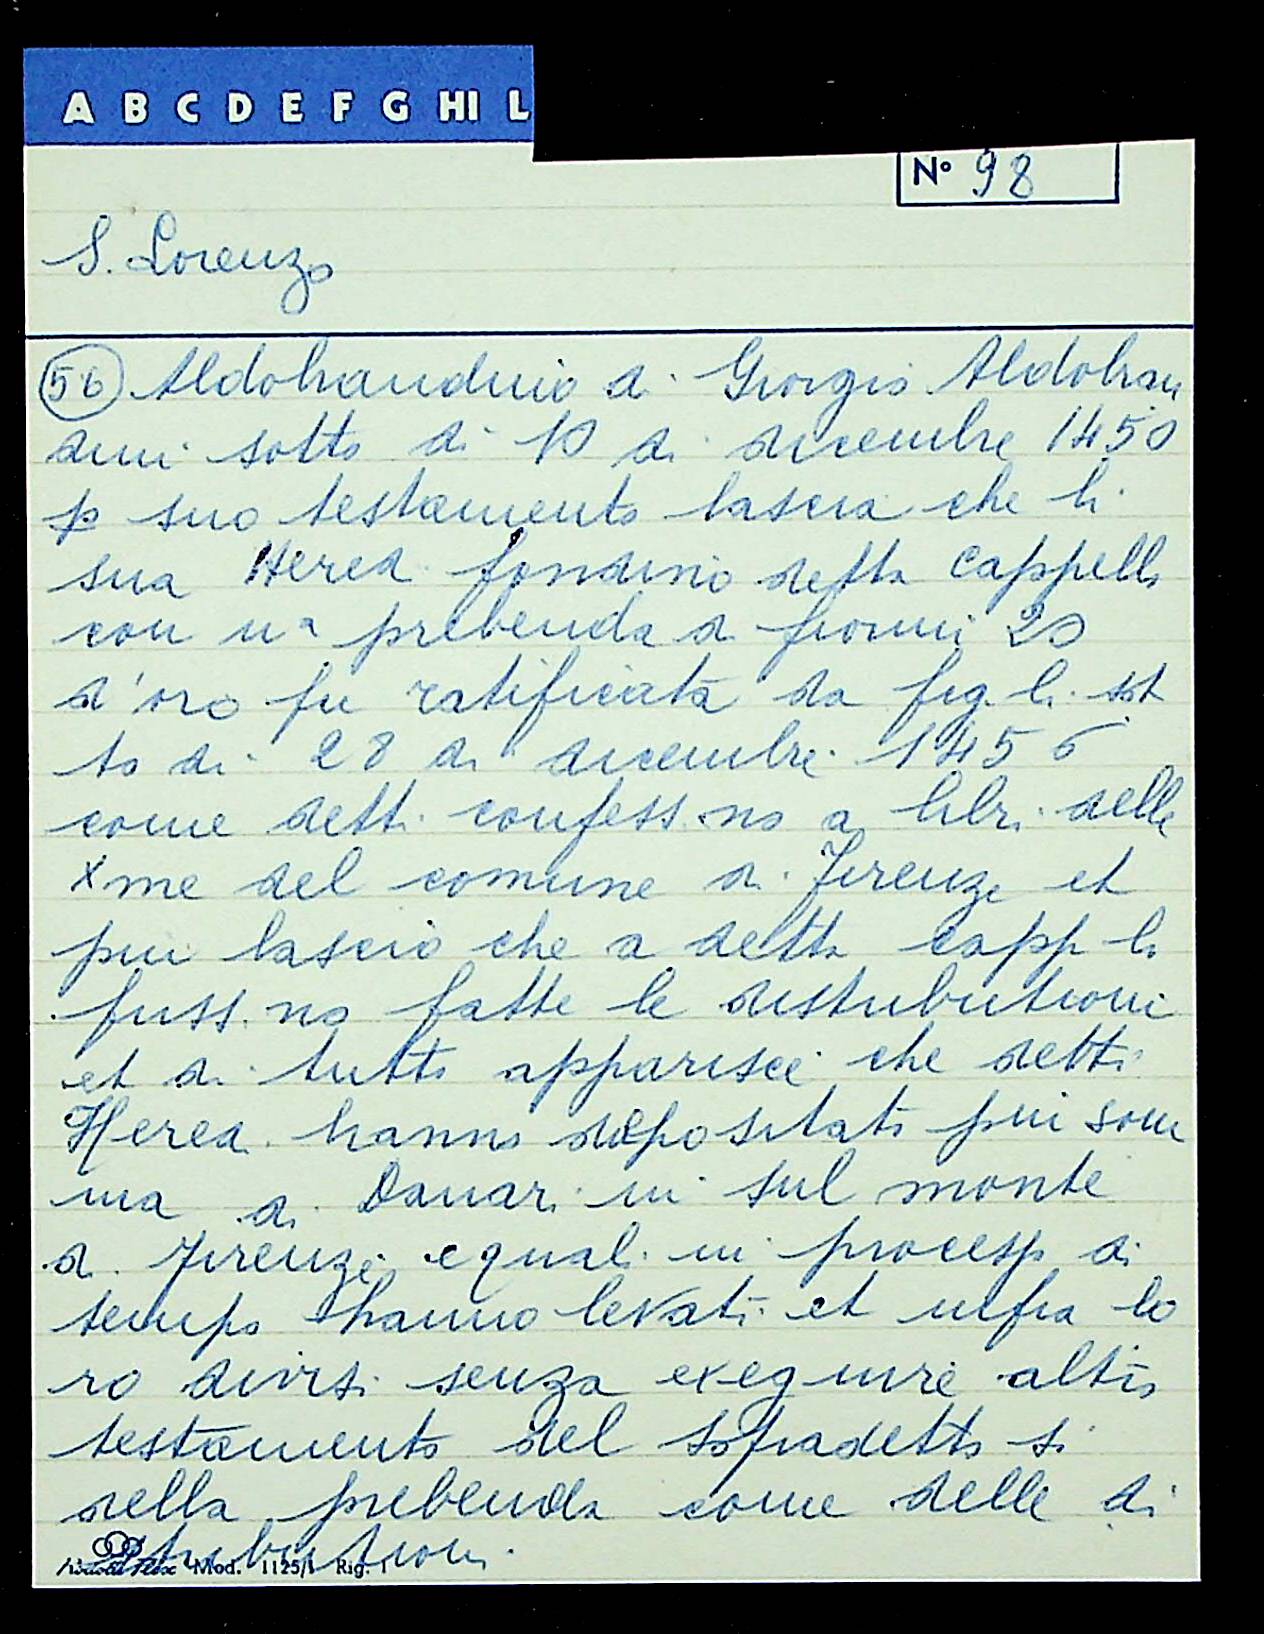 A B C D E F G HI L
Nº 98
S. Lorenzo
56 Aldobrandino di Giorgio Aldobran
dini sotto di 10 di dicembre 1450
p suo testamento lascia che li
sua Heredi fondino detta cappella
con una prebenda di fiorini 20
d'oro fu ratificata da figli sot
to di 28 di dicembre 1456
come detti confessono a libri delle
Xme del comune di Firenze et
piu lascio che a detta capp la
fussino fatte le distributioni
et di tutto apparisce che detti
Heredi hanno depositato piu som
ma di Danari in sul monte
di Firenze e quali in processo di
tempo hanno levati et infra lo
ro divisi senza exequire altro
testamento del sopradetto si
della prebenda come delle di
stributioni.
Mod. 1125/1 Rig. 1